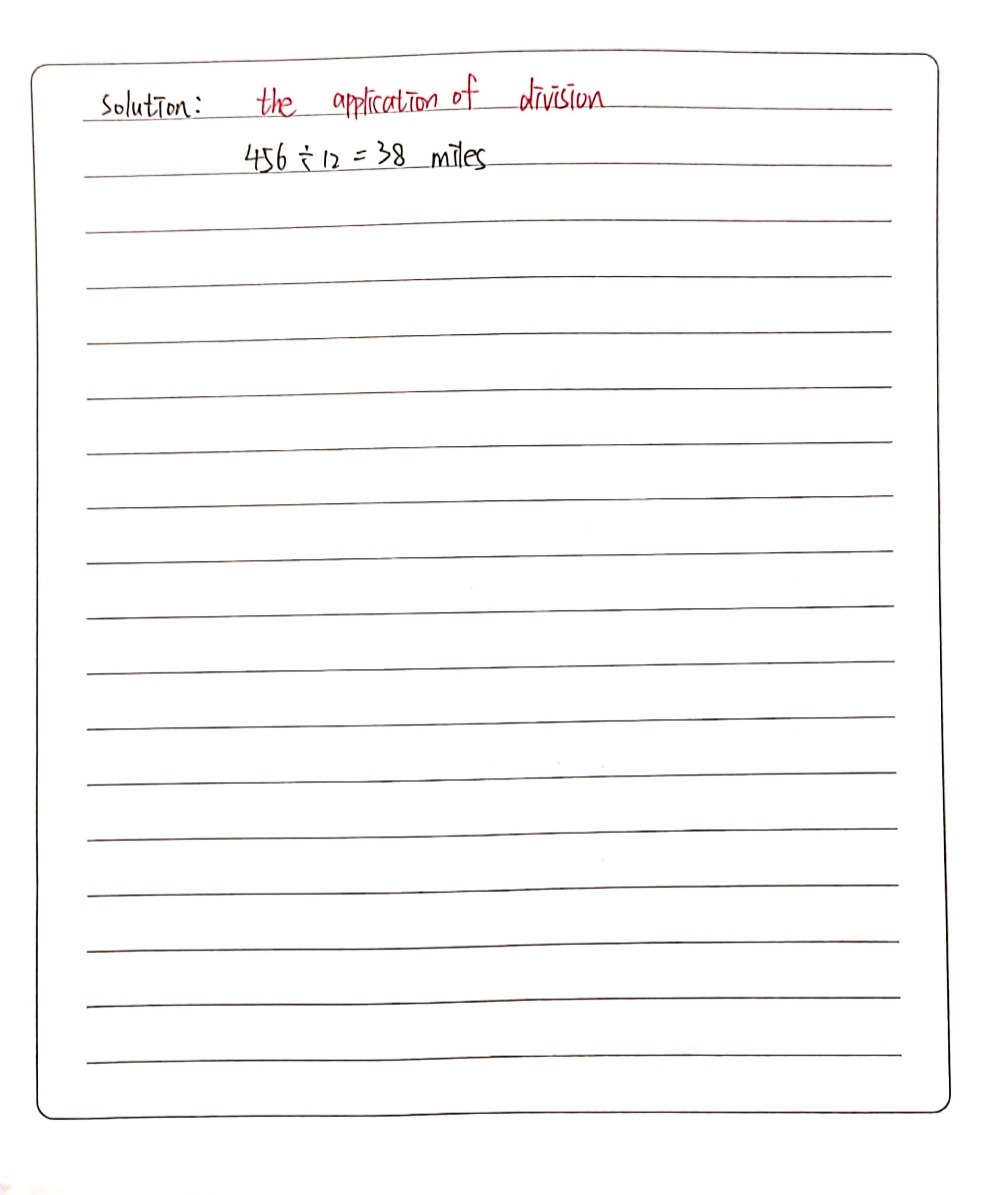 Solution: the application of division
456 ÷ 12 = 38 miles